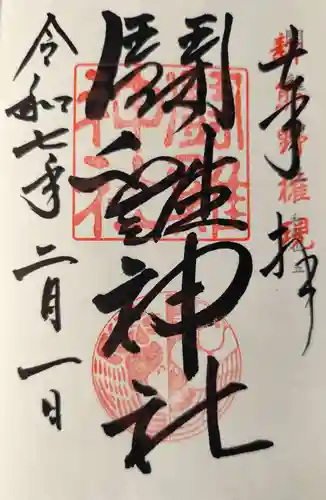 奉拝
新熊野權現
鬪雞神社
鬪雞神社
令和七年二月一日